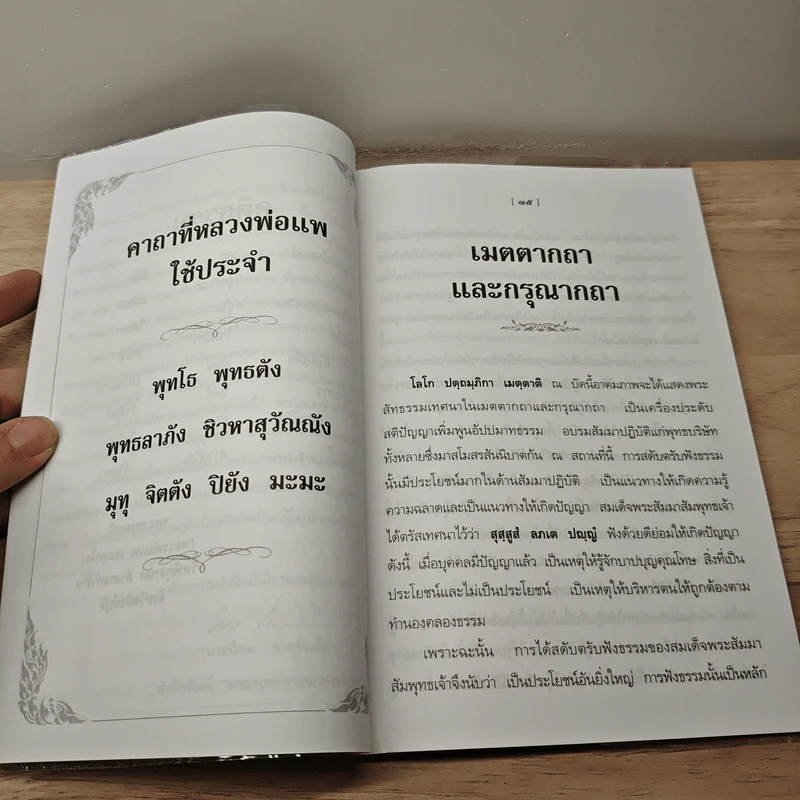 คาถาที่หลวงพ่อแพ
ใช้ประจำ
พุทโธ พุทธตัง
พุทธลาภัง ชิวหาสุวัณณัง
มุทุ จิตตัง ปิยัง มะมะ
[ ๑๕ ]
เมตตากถา
และกรุณากถา
โลโก ปตฺถมฺภิกา เมตฺตาติ ณ บัดนี้อาตมภาพจะได้แสดงพระ
สัทธรรมเทศนาในเมตตากถาและกรุณากถา เป็นเครื่องประดับ
สติปัญญาเพิ่มพูนอัปปมาทธรรม อบรมสัมมาปฏิบัติแก่พุทธบริษัท
ทั้งหลายซึ่งมาสโมสรสันนิบาตกัน ณ สถานที่นี้ การสดับตรับฟังธรรม
นั้นมีประโยชน์มากในด้านสัมมาปฏิบัติ เป็นแนวทางให้เกิดความรู้
ความฉลาดและเป็นแนวทางให้เกิดปัญญา สมเด็จพระสัมมาสัมพุทธเจ้า
ได้ตรัสเทศนาไว้ว่า สุสฺสูสํ ลภเต ปญฺญํ ฟังด้วยดีย่อมให้เกิดปัญญา
ดังนี้ เมื่อบุคคลมีปัญญาแล้ว เป็นเหตุให้รู้จักบาปบุญคุณโทษ สิ่งที่เป็น
ประโยชน์และไม่เป็นประโยชน์ เป็นเหตุให้บริหารตนให้ถูกต้องตาม
ทำนองคลองธรรม
เพราะฉะนั้น การได้สดับตรับฟังธรรมของสมเด็จพระสัมมา
สัมพุทธเจ้าจึงนับว่า เป็นประโยชน์อันยิ่งใหญ่ การฟังธรรมนั้นเป็นหลัก